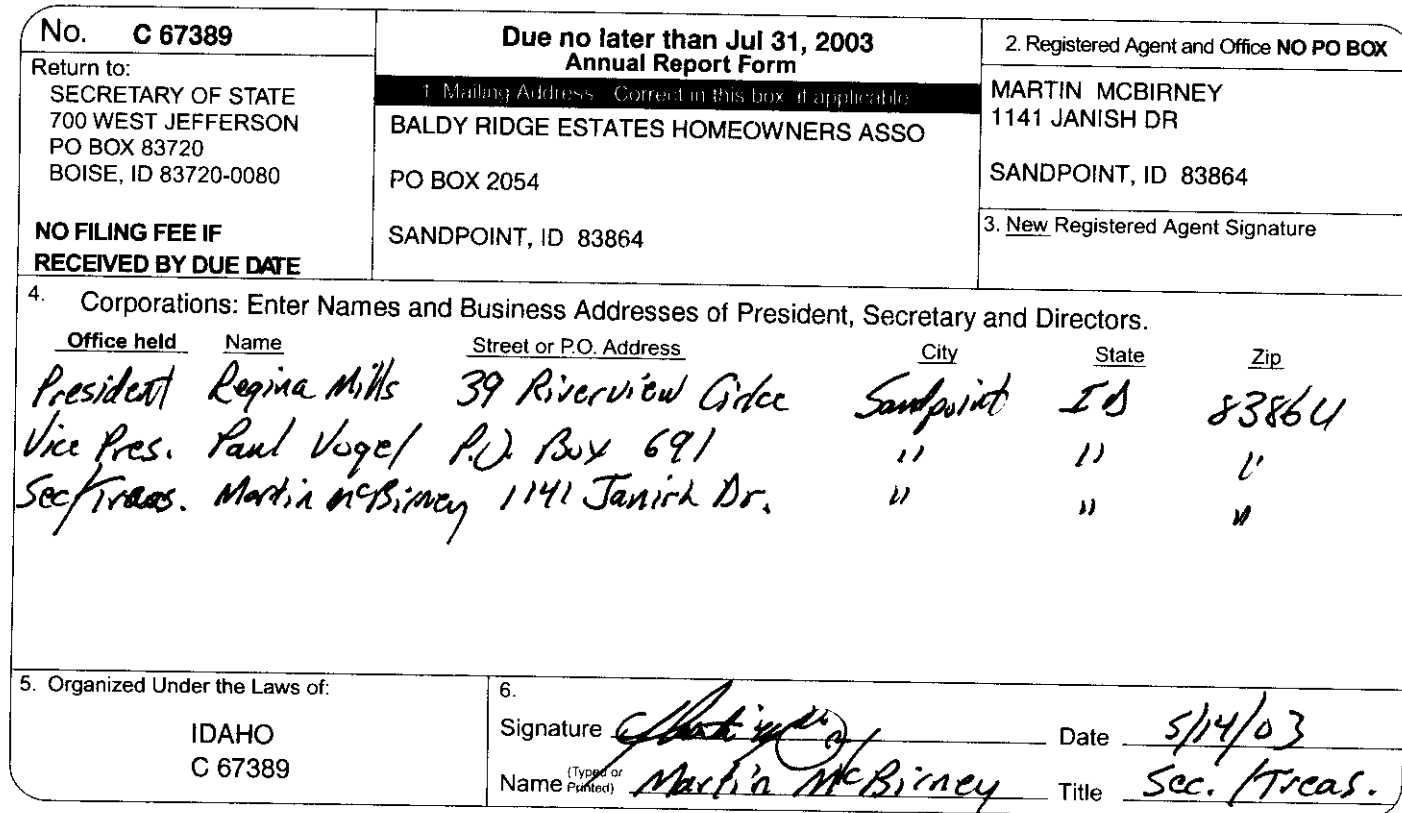 No. C 67389
Return to:
SECRETARY OF STATE
700 WEST JEFFERSON
PO BOX 83720
BOISE, ID 83720-0080
NO FILING FEE IF
RECEIVED BY DUE DATE
Due no later than Jul 31, 2003
Annual Report Form
1. Mailing Address. Correct in this box, if applicable
BALDY RIDGE ESTATES HOMEOWNERS ASSO
PO BOX 2054
SANDPOINT, ID 83864
2. Registered Agent and Office NO PO BOX
MARTIN MCBIRNEY
1141 JANISH DR
SANDPOINT, ID 83864
3. New Registered Agent Signature
4. Corporations: Enter Names and Business Addresses of President, Secretary and Directors.
Office held Name Street or P.O. Address City State Zip
President Regina Mills 39 Riverview Circle Sandpoint ID 83864
Vice Pres. Paul Vogel P.O. Box 691 " " "
Sec/Treas. Martin McBirney 1141 Janish Dr. " " "
5. Organized Under the Laws of:
IDAHO
C 67389
6.
Signature Date 5/14/03
Name (Typed or Printed) Martin McBirney Title Sec./Treas.